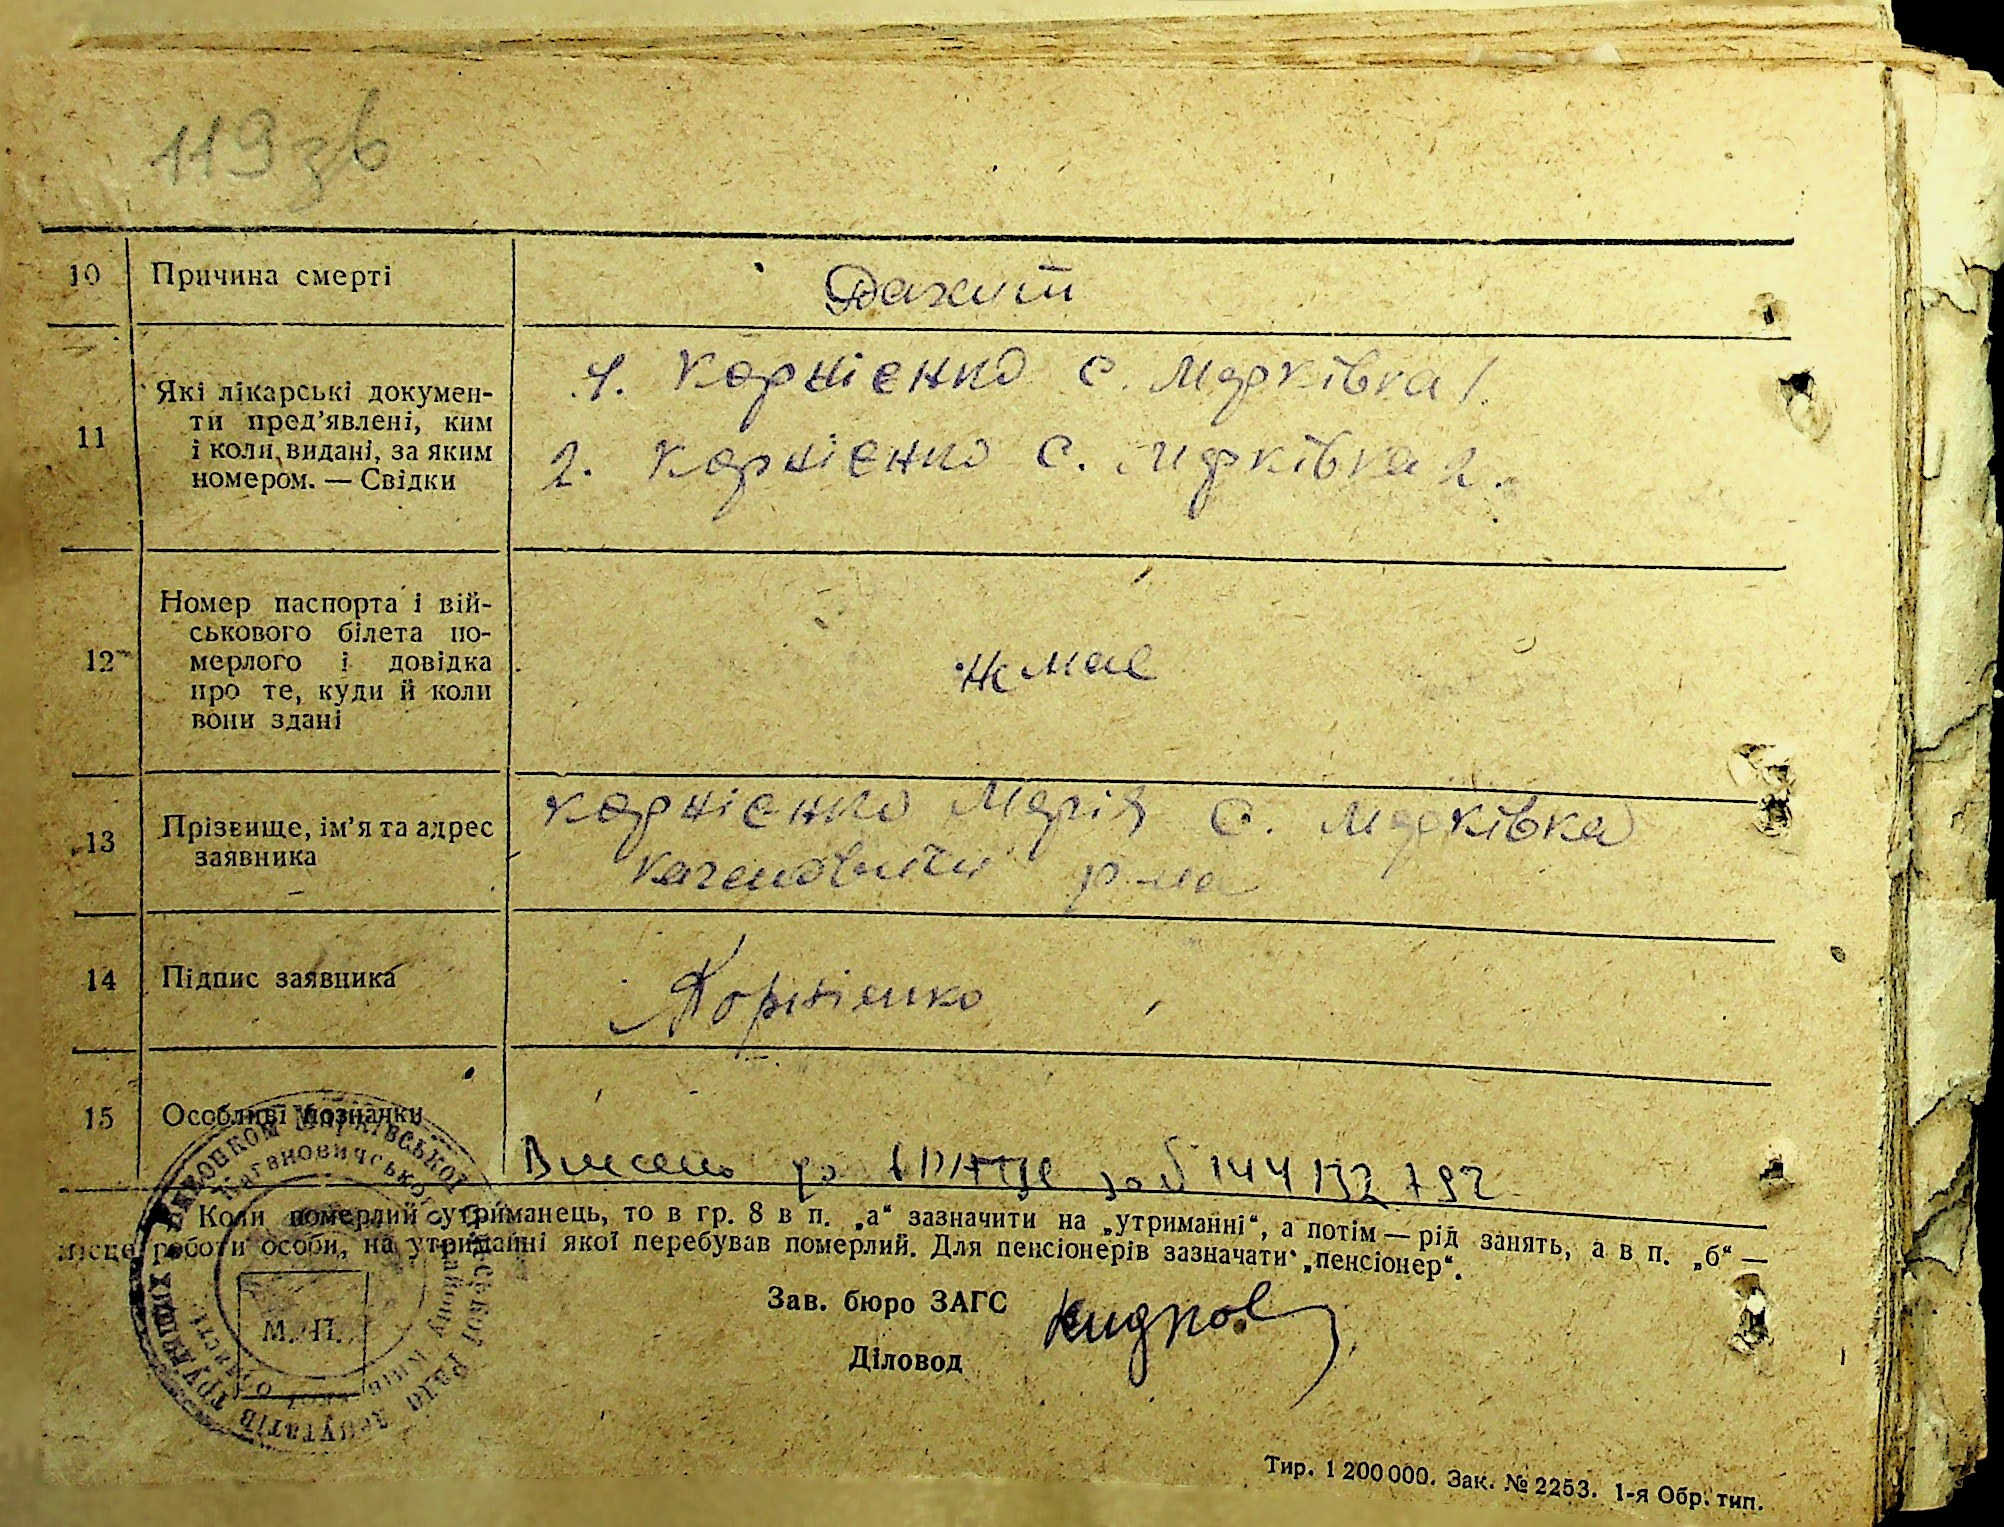 119 зв
10 Причина смерті Рахит
11 Які лікарські докумен-
ти пред'явлені, ким
і коли видані, за яким
номером. — Свідки
1. Корнієнко с. Марківка 1.
2. Корнієнко с. Марківка 2.
12 Номер паспорта і вій-
ськового білета по-
мерлого і довідка
про те, куди й коли
вони здані
не має
13 Прізвище, ім'я та адрес
заявника
Корнієнко Марія с. Марківка
Кагановичи р-на
14 Підпис заявника Корнієнко
15 Особливі позначки
Внесено до ДРАЦС за № 144 132 792
Коли померлий утриманець, то в гр. 8 в п. „а“ зазначити на „утриманні“, а потім — рід занять, а в п. „б“ —
місце роботи особи, на утриманні якої перебував померлий. Для пенсіонерів зазначати „пенсіонер“.
Зав. бюро ЗАГС
Діловод
М. П.
Виконком Марківської сільської Ради депутатів трудящих
Кагановичського району Київської області
Тир. 1 200 000. Зак. № 2253. 1-я Обр. тип.